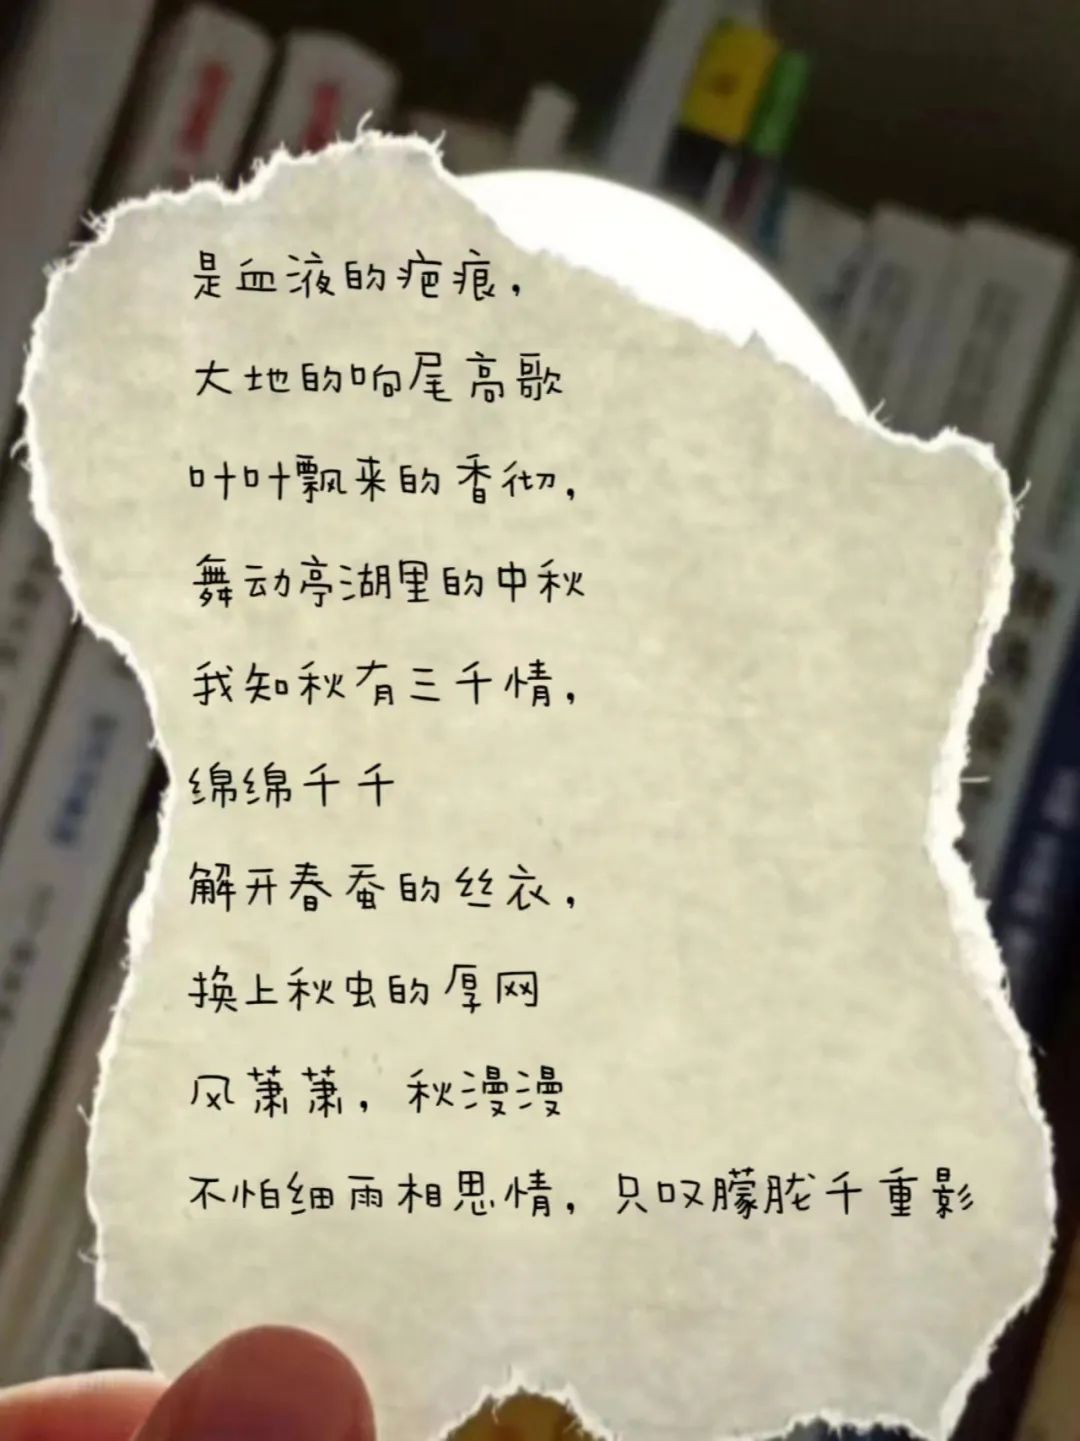 是血液的疤痕，
大地的响尾高歌
叶叶飘来的香彻，
舞动亭湖里的中秋
我知秋有三千情，
绵绵千千
解开春蚕的丝衣，
换上秋虫的厚网
风萧萧，秋漫漫
不怕细雨相思情，只叹朦胧千重影